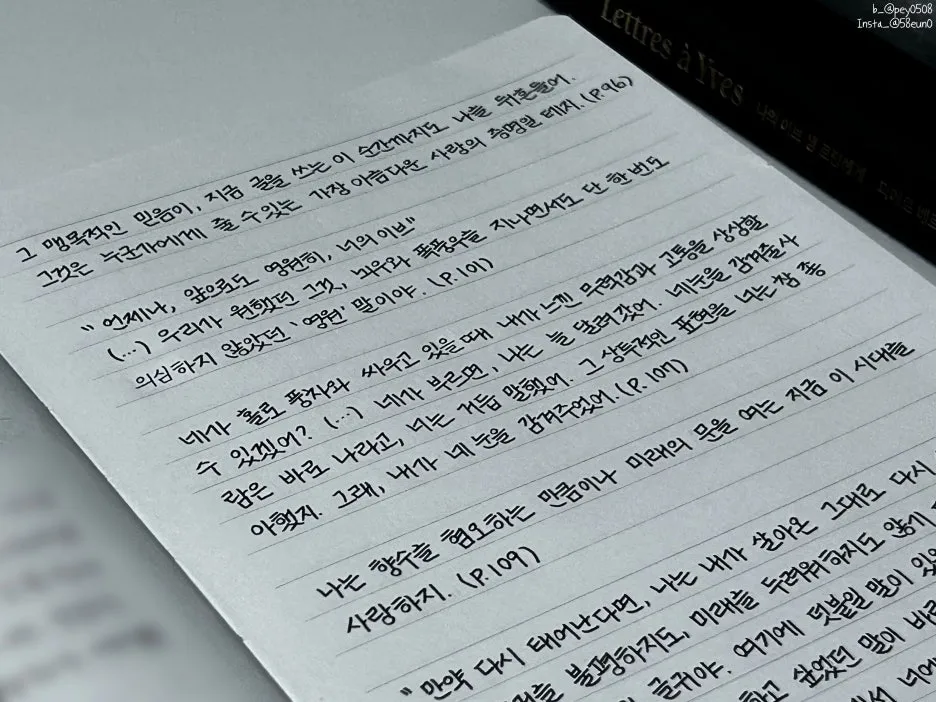 b_@pey0508
Insta_@58eun0
Lettres à Yves 나의 이브 생 로랑에게
그 맹목적인 믿음이, 지금 글을 쓰는 이 순간까지도 나를 뒤흔들어.
그것은 누군가에게 줄 수 있는 가장 아름다운 사랑의 증명일 테지. (P.96)
"언제나, 앞으로도 영원히, 너의 이브"
(...) 우리가 원했던 그것, 뇌우와 폭풍우를 지나면서도 단 한 번도
의심하지 않았던 '영원' 말이야. (P.101)
네가 홀로 풍차와 싸우고 있을 때 내가 느낀 무력감과 고통을 상상할
수 있겠어? (...) 네가 부르면, 나는 늘 달려갔어. 네 눈을 감겨줄 사
람은 바로 나라고, 너는 거듭 말했어. 그 상투적인 표현을 너는 참 좋
아했지. 그래, 내가 네 눈을 감겨주었어. (P.107)
나는 향수를 혐오하는 만큼이나 미래의 문을 여는 지금 이 시대를
사랑하지. (P.109)
"만약 다시 태어난다면, 나는 내가 살아온 그대로 다시
불평하지도, 미래를 두려워하지도 않기
글귀야. 여기에 덧붙일 말이
하고 싶었던 말이
너에